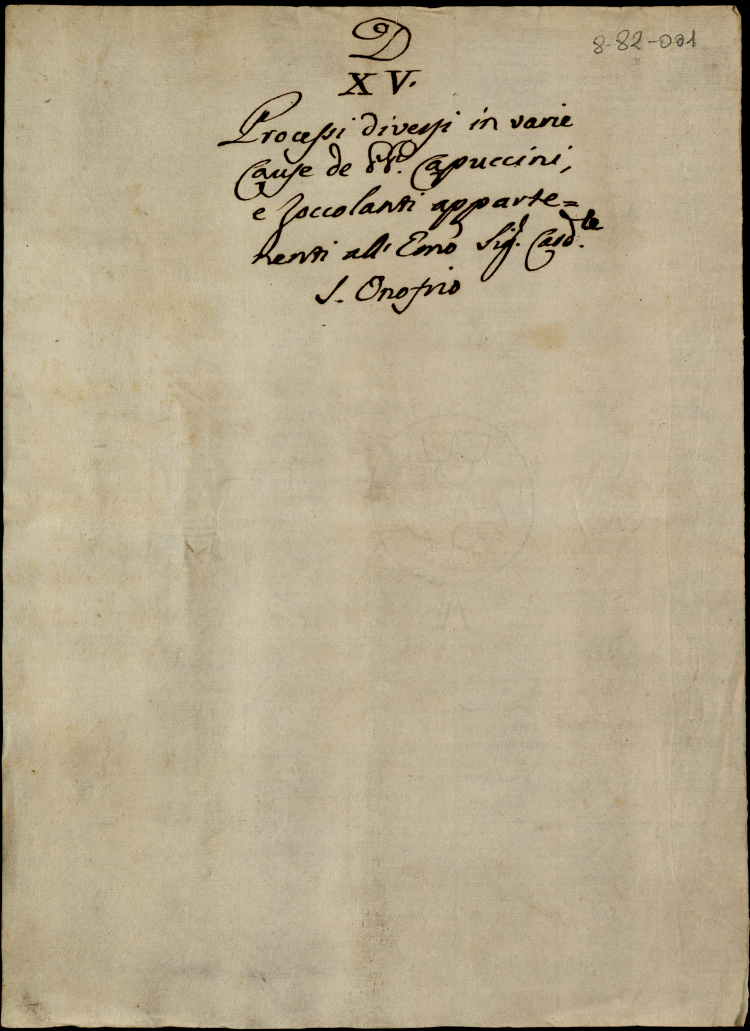 8-82-001
D
XV.
Processi diversi in varie
Cause de PP. Capuccini,
e Zoccolanti apparte=
nenti all' Emo Sig.r Card.le
S. Onofrio